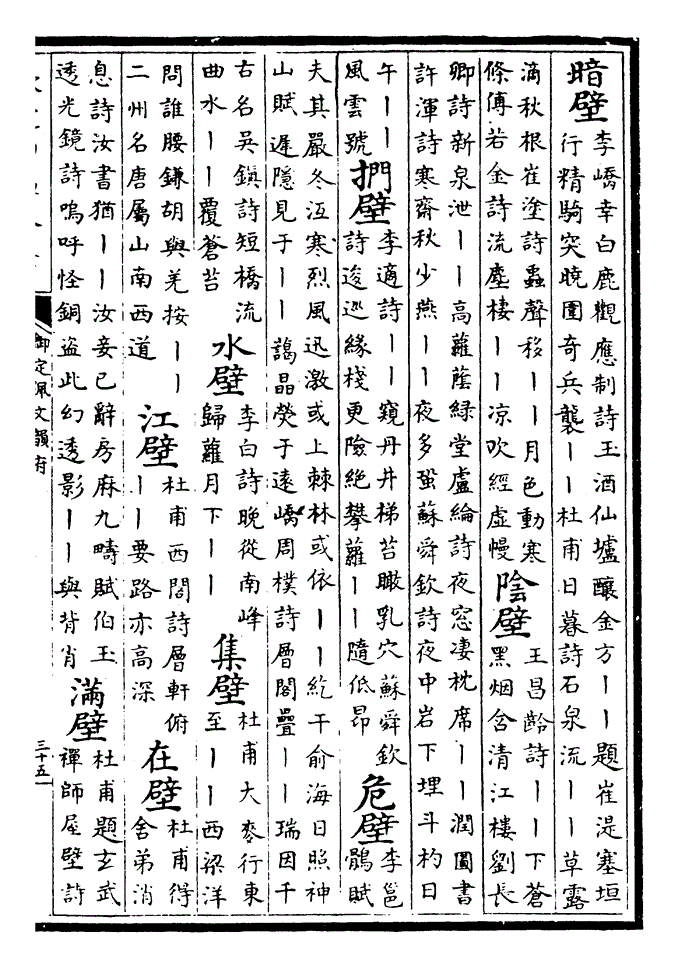 暗壁
李嶠幸白鹿觀應制詩玉酒仙壚釀金方丨丨題崔湜塞垣
行精騎突曉圍奇兵襲丨丨杜甫日暮詩石泉流丨丨草露
滴秋根崔塗詩蟲聲移丨丨月色動寒
條傅若金詩流塵棲丨丨凉吹經虛幔
陰壁
王昌齡詩丨丨下蒼
黑烟含清江樓劉長
卿詩新泉泄丨丨高蘿蔭綠堂盧綸詩夜窓凄枕席丨丨潤圖書
許渾詩寒齋秋少燕丨丨夜多蛩蘇舜欽詩夜中岩下埋斗杓日
午丨丨
風雲號
捫壁
李適詩丨丨窺丹井梯苔瞰乳穴蘇舜欽
詩逡巡緣棧更險絶攀蘿丨丨隨低昂
危壁
李邕
鶻賦
夫其嚴冬冱寒烈風迅激或上棘林或依丨丨紇干俞海日照神
山賦遲隱見于丨丨藹晶熒于遠嶠周樸詩層閣疊丨丨瑞因千
古名吳鎮詩短橋流
曲水丨丨覆蒼苔
水壁
李白詩晚從南峰
歸蘿月下丨丨
集壁
杜甫大麥行東
至丨丨西梁洋
問誰腰鎌胡與羌按丨丨
二州名唐屬山南西道
江壁
杜甫西閣詩層軒俯
丨丨要路亦高深
在壁
杜甫得
舍弟消
息詩汝書猶丨丨汝妾已辭房麻九疇賦伯玉
透光鏡詩嗚呼怪銅盜此幻透影丨丨與背肖
滿壁
杜甫題玄武
禪師屋壁詩
御定佩文韻府
三十五